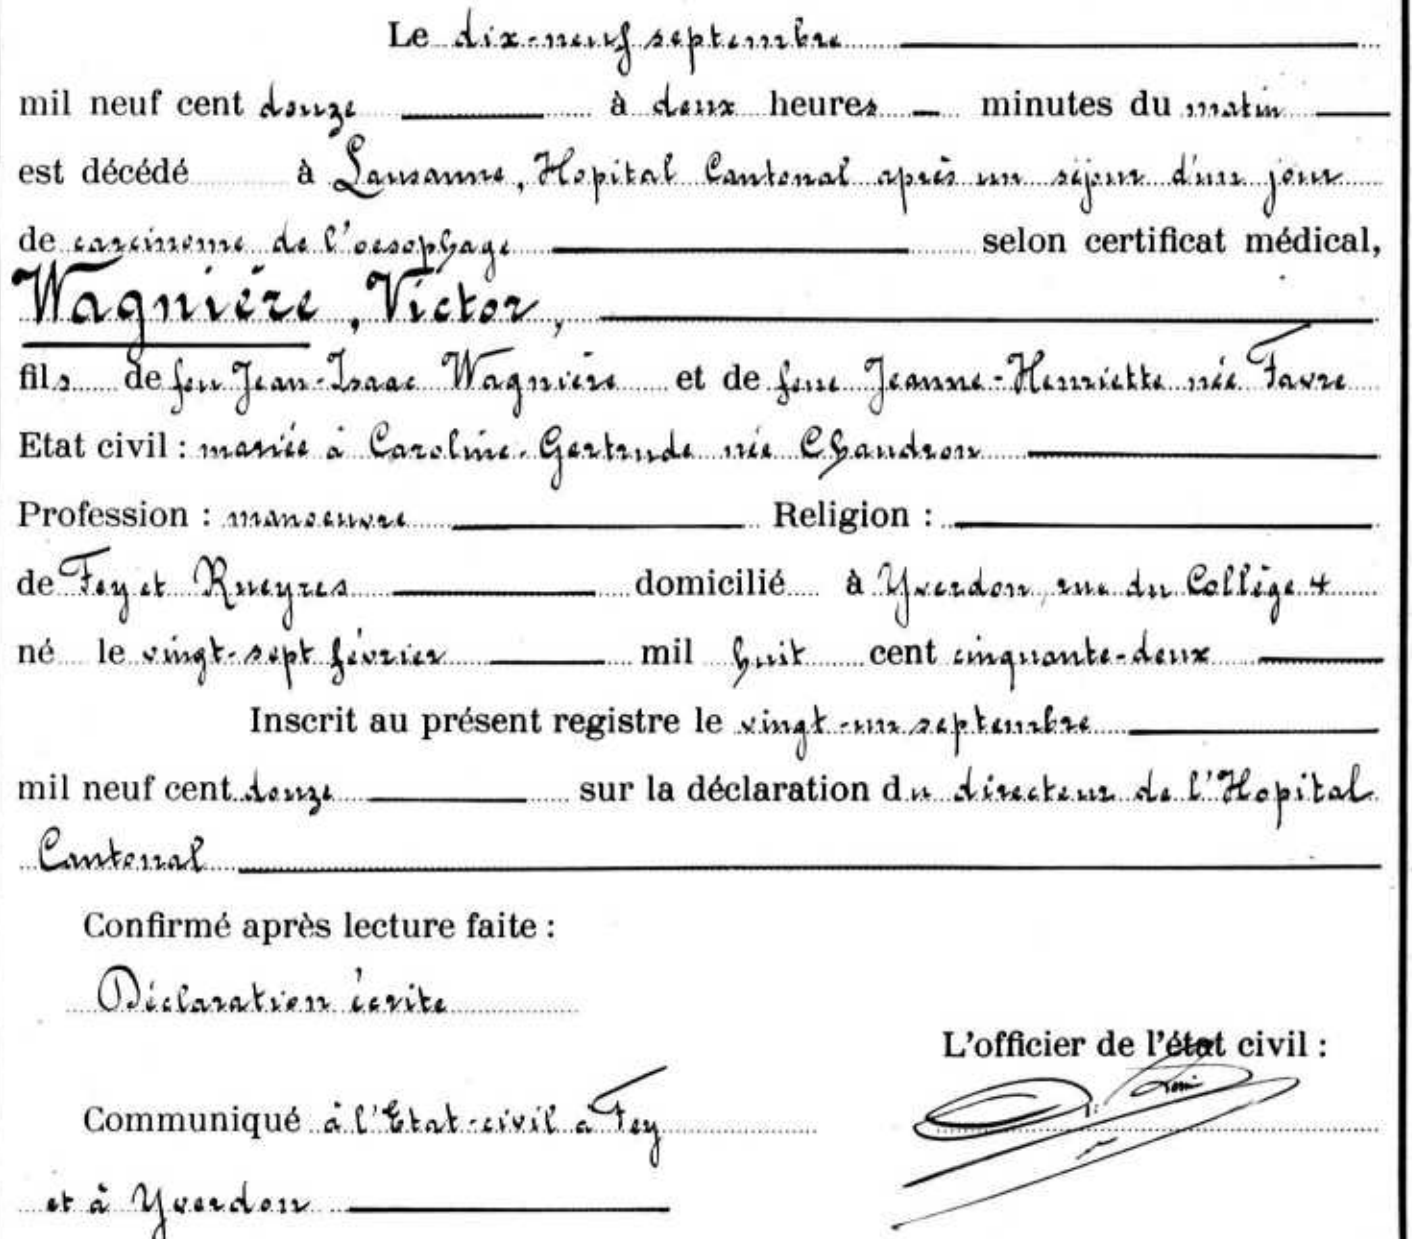 Le dix-neuf septembre
mil neuf cent douze à deux heures minutes du matin
est décédé à Lausanne, Hopital Cantonal après un séjour d'un jour
de carcinome de l'oesophage selon certificat médical,
Wagnière, Victor,
fils de feu Jean-Isaac Wagnière et de feue Jeanne-Henriette née Favre
Etat civil : mariée à Caroline-Gertrude née Chaudron
Profession : manoeuvre Religion :
de Fey et Rueyres domicilié à Yverdon, rue du Collège 4
né le vingt-sept février mil huit cent cinquante-deux
Inscrit au présent registre le vingt-un septembre
mil neuf cent douze sur la déclaration du directeur de l'Hopital
Cantonal
Confirmé après lecture faite :
Déclaration écrite
L'officier de l'état civil :
Communiqué à l'Etat-civil à Fey
et à Yverdon